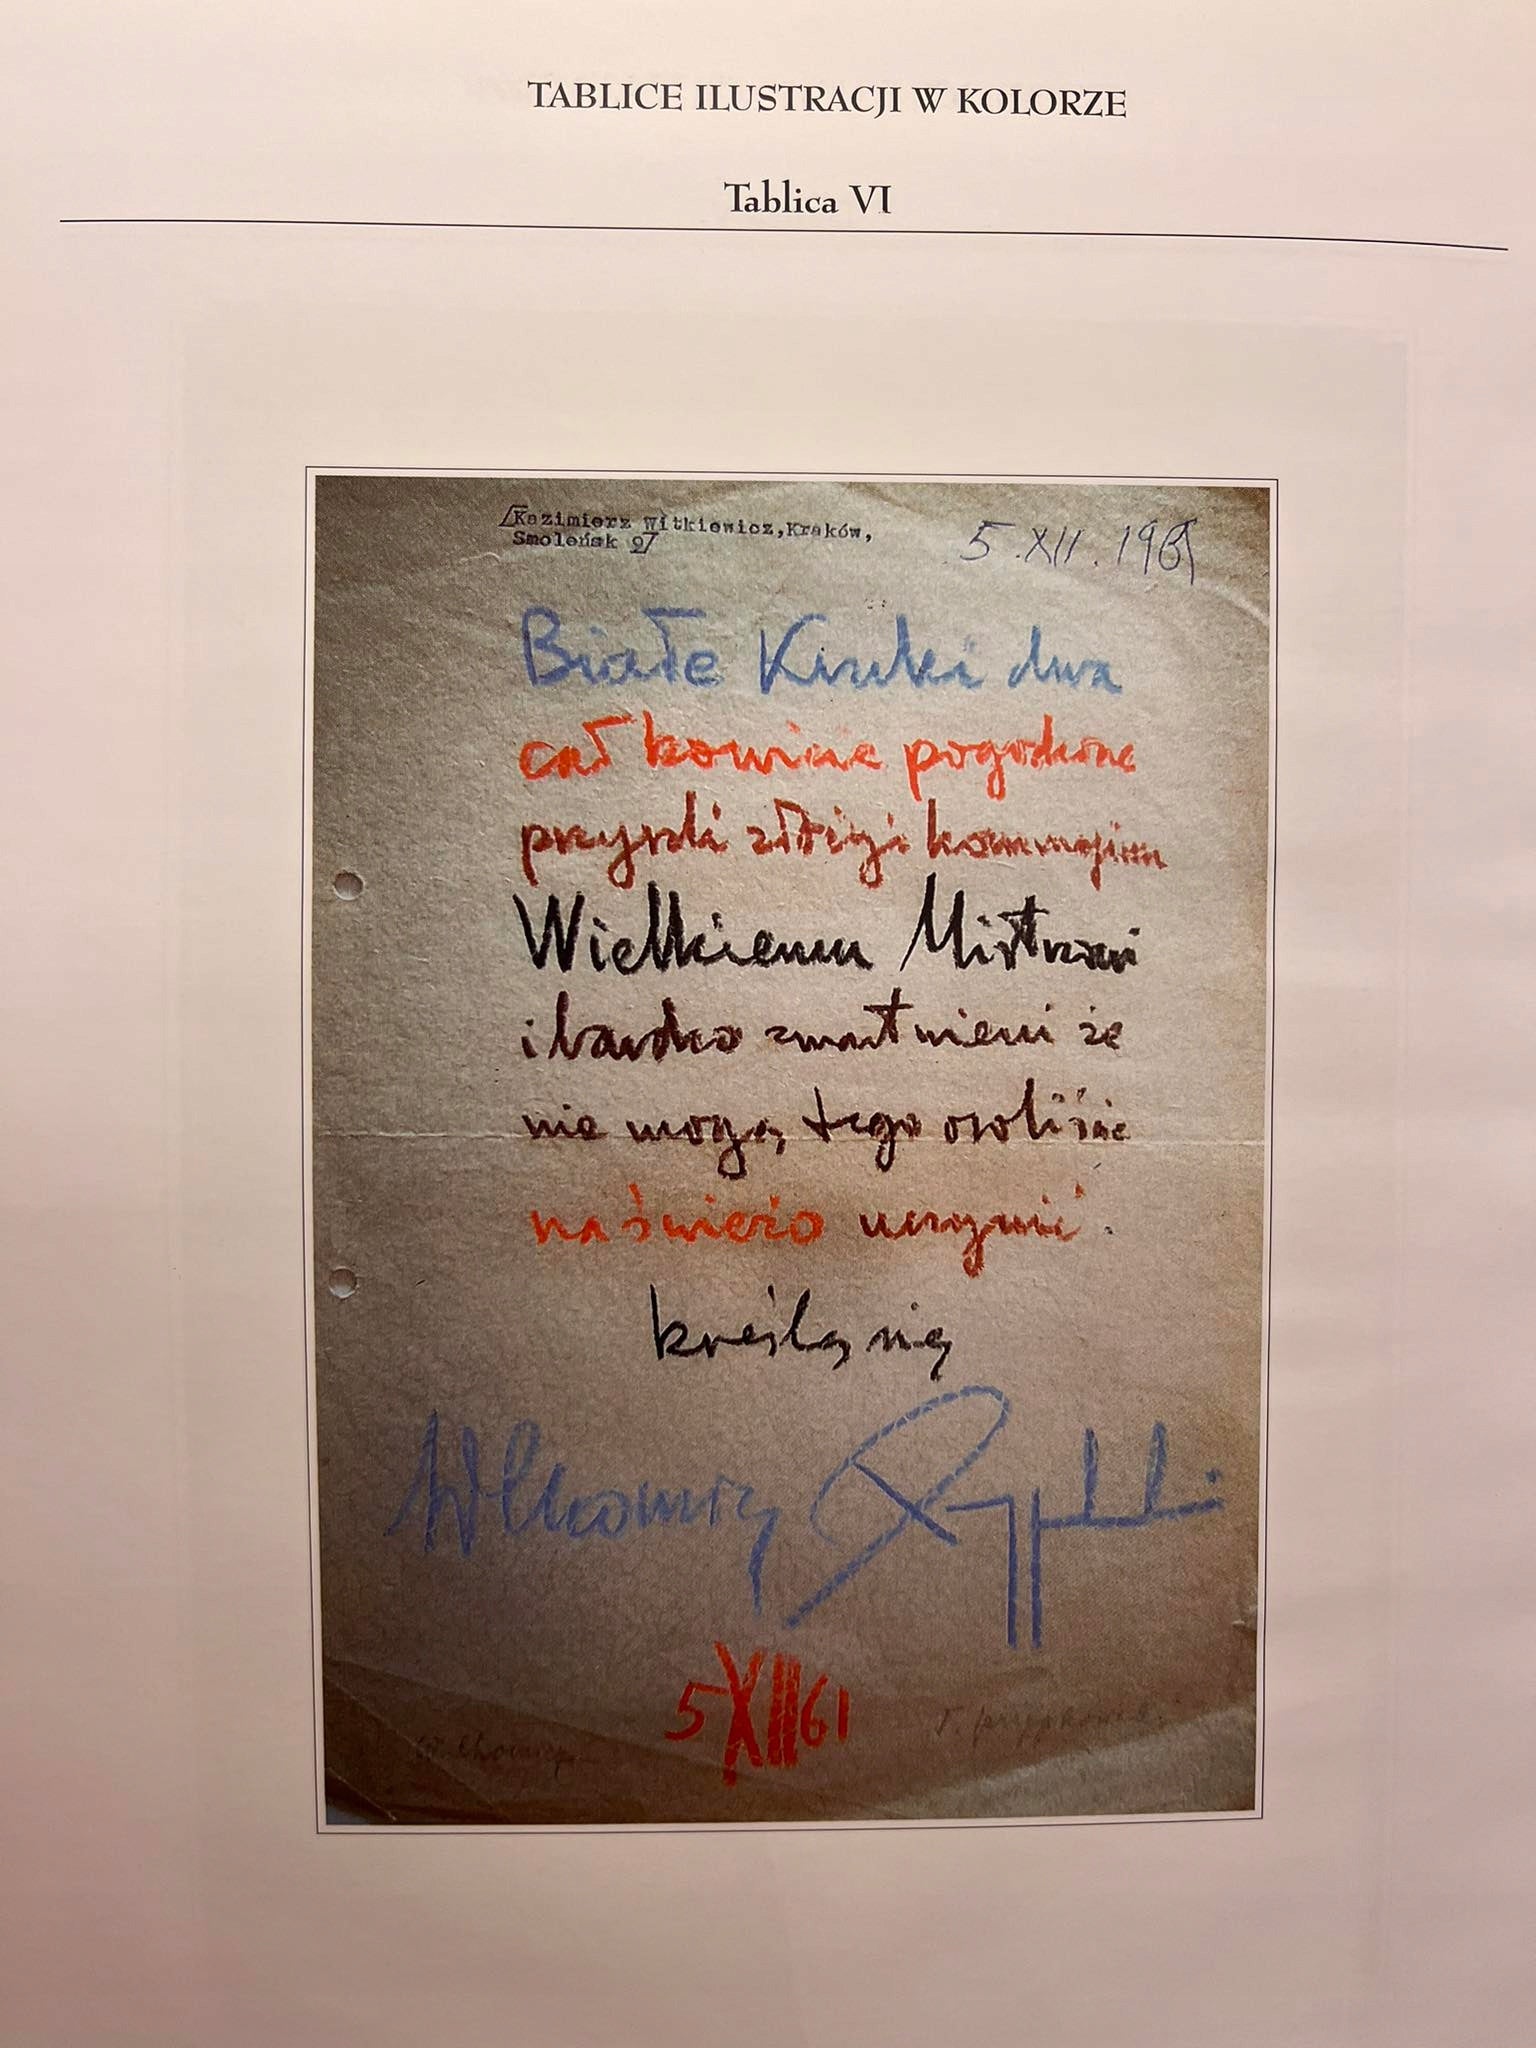 TABLICE ILUSTRACJI W KOLORZE
Tablica VI
[Kazimierz Witkiewicz, Kraków,
Smoleńsk 9]
5.XII.1961
Białe Kruki dwa
całkowicie pogodzone
przyszli złożyć
Wielkiemu Mistrzowi
i bardzo zmartwieni że
nie mogą tego osobiście
na świeżo uczynić.
kreślą się
5 XII 61